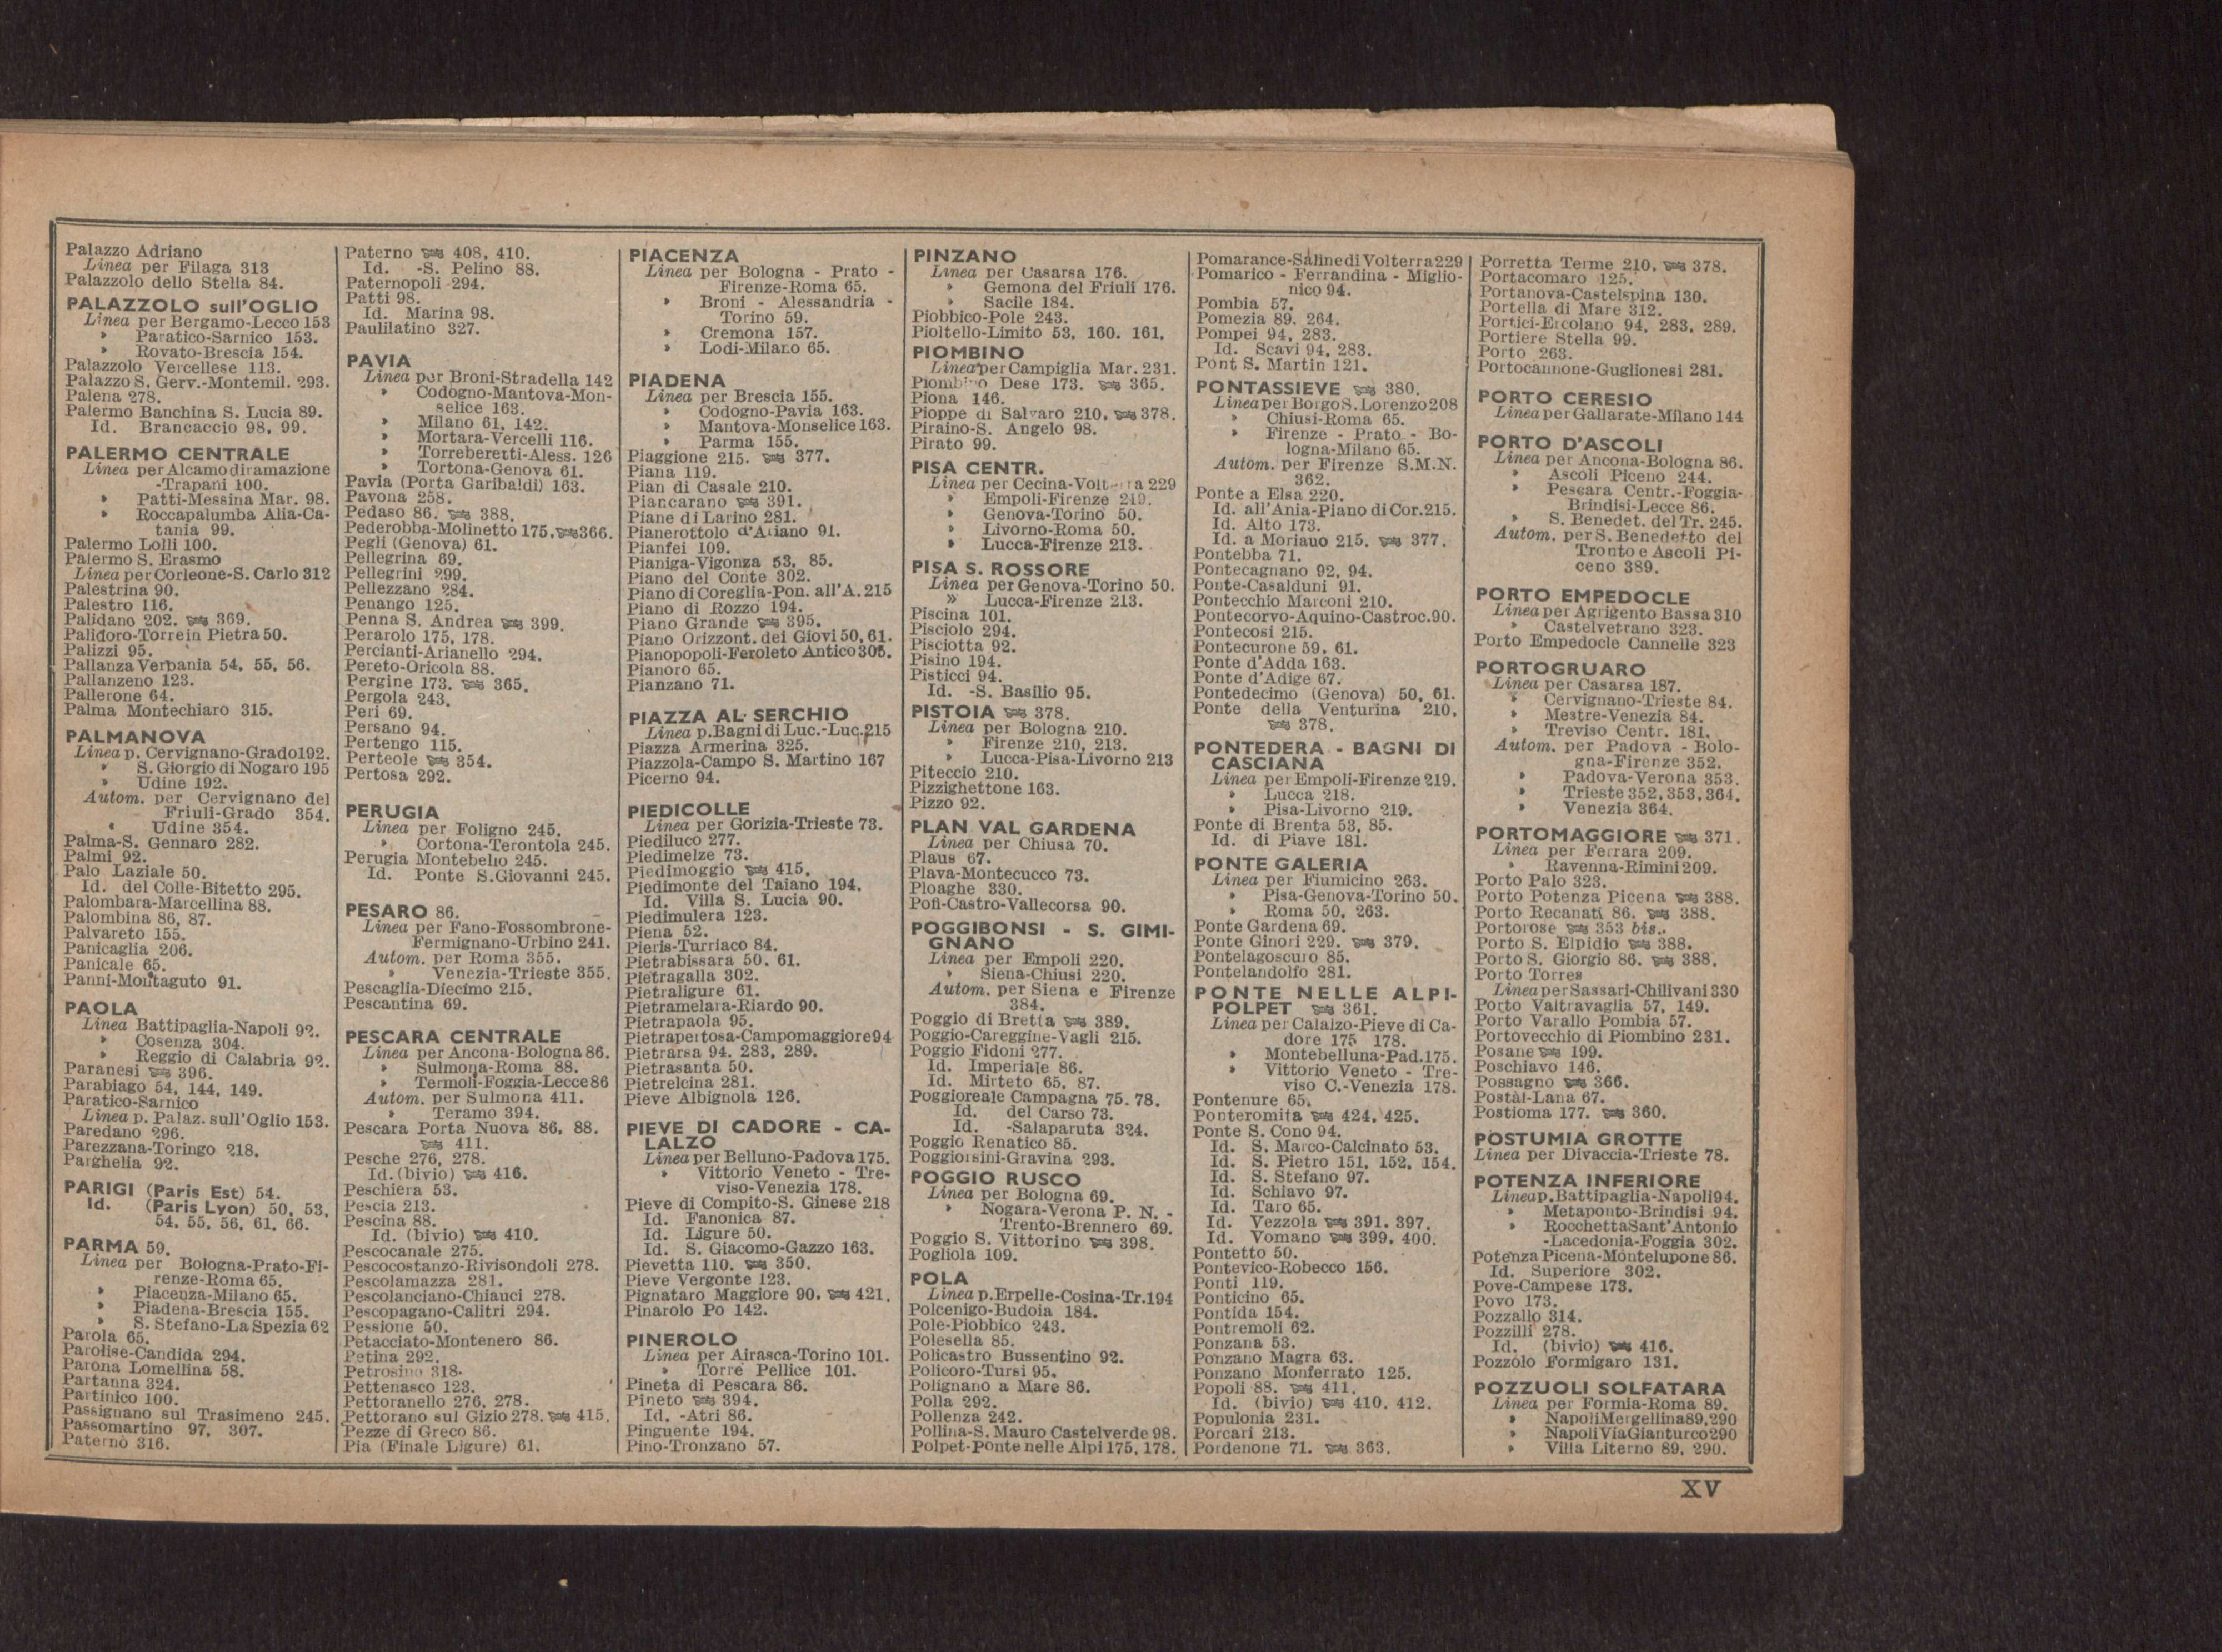 Palazzo Adriano
Linea per Filaga 313
Palazzolo dello Stella 84.
PALAZZOLO sull'OGLIO
Linea per Bergamo-Lecco 153
» Paratico-Sarnico 153.
» Rovato-Brescia 154.
Palazzolo Vercellese 113.
Palazzo S. Gerv.-Montemil. 293.
Palena 278.
Palermo Banchina S. Lucia 89.
Id. Brancaccio 98, 99.
PALERMO CENTRALE
Linea per Alcamo diramazione
-Trapani 100.
» Patti-Messina Mar. 98.
» Roccapalumba Alia-Ca-
tania 99.
Palermo Lolli 100.
Palermo S. Erasmo
Linea per Corleone-S. Carlo 312
Palestrina 90.
Palestro 116.
Palidano 202. 369.
Palidoro-Torre in Pietra 50.
Palizzi 95.
Pallanza Verbania 54, 55, 56.
Pallanzeno 123.
Pallerone 64.
Palma Montechiaro 315.
PALMANOVA
Linea p. Cervignano-Grado 192.
» S. Giorgio di Nogaro 195
» Udine 192.
Autom. per Cervignano del
Friuli-Grado 354.
» Udine 354.
Palma-S. Gennaro 282.
Palmi 92.
Palo Laziale 50.
Id. del Colle-Bitetto 295.
Palombara-Marcellina 88.
Palombina 86, 87.
Palvareto 155.
Panicaglia 206.
Panicale 65.
Panni-Montaguto 91.
PAOLA
Linea Battipaglia-Napoli 92.
» Cosenza 304.
» Reggio di Calabria 92.
Paranesi 396.
Parabiago 54, 144, 149.
Paratico-Sarnico
Linea p. Palaz. sull'Oglio 153.
Paredano 296.
Parezzana-Toringo 218.
Parghelia 92.
PARIGI (Paris Est) 54.
Id. (Paris Lyon) 50, 53,
54, 55, 56, 61, 66.
PARMA 59.
Linea per Bologna-Prato-Fi-
renze-Roma 65.
» Piacenza-Milano 65.
» Piadena-Brescia 155.
» S. Stefano-La Spezia 62
Parola 65.
Parolise-Candida 294.
Parona Lomellina 58.
Partanna 324.
Partinico 100.
Passignano sul Trasimeno 245.
Passomartino 97, 307.
Paternò 316.
Paterno 408, 410.
Id. -S. Pelino 88.
Paternopoli 294.
Patti 98.
Id. Marina 98.
Paulilatino 327.
PAVIA
Linea per Broni-Stradella 142
» Codogno-Mantova-Mon-
selice 163.
» Milano 61, 142.
» Mortara-Vercelli 116.
» Torreberetti-Aless. 126
» Tortona-Genova 61.
Pavia (Porta Garibaldi) 163.
Pavona 258.
Pedaso 86. 388.
Pederobba-Molinetto 175. 366.
Pegli (Genova) 61.
Pellegrina 69.
Pellegrini 299.
Pellezzano 284.
Penango 125.
Penna S. Andrea 399.
Perarolo 175, 178.
Percianti-Arianello 294.
Pereto-Oricola 88.
Pergine 173. 365.
Pergola 243.
Peri 69.
Persano 94.
Pertengo 115.
Perteole 354.
Pertosa 292.
PERUGIA
Linea per Foligno 245.
» Cortona-Terontola 245.
Perugia Montebello 245.
Id. Ponte S. Giovanni 245.
PESARO 86.
Linea per Fano-Fossombrone-
Fermignano-Urbino 241.
Autom. per Roma 355.
» Venezia-Trieste 355.
Pescaglia-Diecimo 215.
Pescantina 69.
PESCARA CENTRALE
Linea per Ancona-Bologna 86.
» Sulmona-Roma 88.
» Termoli-Foggia-Lecce 86
Autom. per Sulmona 411.
» Teramo 394.
Pescara Porta Nuova 86, 88.
411.
Pesche 276, 278.
Id. (bivio) 416.
Peschiera 53.
Pescia 213.
Pescina 88.
Id. (bivio) 410.
Pescocanale 275.
Pescocostanzo-Rivisondoli 278.
Pescolamazza 281.
Pescolanciano-Chiauci 278.
Pescopagano-Calitri 294.
Pessione 50.
Petacciato-Montenero 86.
Petina 292.
Petrosino 318.
Pettenasco 123.
Pettoranello 276, 278.
Pettorano sul Gizio 278. 415.
Pezze di Greco 86.
Pia (Finale Ligure) 61.
PIACENZA
Linea per Bologna - Prato -
Firenze-Roma 65.
» Broni - Alessandria -
Torino 59.
» Cremona 157.
» Lodi-Milano 65.
PIADENA
Linea per Brescia 155.
» Codogno-Pavia 163.
» Mantova-Monselice 163.
» Parma 155.
Piaggione 215. 377.
Piana 119.
Pian di Casale 210.
Piancarano 391.
Piane di Larino 281.
Pianerottolo d'Ariano 91.
Pianfei 109.
Pianiga-Vigonza 53, 85.
Piano del Conte 302.
Piano di Coreglia-Pon. all'A. 215
Piano di Rozzo 194.
Piano Grande 395.
Piano Orizzont. dei Giovi 50, 61.
Pianopopoli-Feroleto Antico 305.
Pianoro 65.
Pianzano 71.
PIAZZA AL SERCHIO
Linea p. Bagni di Luc.-Luc. 215
Piazza Armerina 325.
Piazzola-Campo S. Martino 167
Picerno 94.
PIEDICOLLE
Linea per Gorizia-Trieste 73.
Piediluco 277.
Piedimelze 73.
Piedimoggio 415.
Piedimonte del Taiano 194.
Id. Villa S. Lucia 90.
Piedimulera 123.
Piena 52.
Pieris-Turriaco 84.
Pietrabissara 50. 61.
Pietragalla 302.
Pietraligure 61.
Pietramelara-Riardo 90.
Pietrapaola 95.
Pietrapertosa-Campomaggiore 94
Pietrarsa 94. 283, 289.
Pietrasanta 50.
Pietrelcina 281.
Pieve Albignola 126.
PIEVE DI CADORE - CA-
LALZO
Linea per Belluno-Padova 175.
» Vittorio Veneto - Tre-
viso-Venezia 178.
Pieve di Compito-S. Ginese 218
Id. Fanonica 87.
Id. Ligure 50.
Id. S. Giacomo-Gazzo 163.
Pievetta 110. 350.
Pieve Vergonte 123.
Pignataro Maggiore 90. 421.
Pinarolo Po 142.
PINEROLO
Linea per Airasca-Torino 101.
» Torre Pellice 101.
Pineta di Pescara 86.
Pineto 394.
Id. -Atri 86.
Pinguente 194.
Pino-Tronzano 57.
PINZANO
Linea per Casarsa 176.
» Gemona del Friuli 176.
» Sacile 184.
Piobbico-Pole 243.
Pioltello-Limito 53, 160. 161.
PIOMBINO
Linea per Campiglia Mar. 231.
Piombino Dese 173. 365.
Piona 146.
Pioppe di Salvaro 210. 378.
Piraino-S. Angelo 98.
Pirato 99.
PISA CENTR.
Linea per Cecina-Volterra 229
» Empoli-Firenze 219.
» Genova-Torino 50.
» Livorno-Roma 50.
» Lucca-Firenze 213.
PISA S. ROSSORE
Linea per Genova-Torino 50.
» Lucca-Firenze 213.
Piscina 101.
Pisciolo 294.
Pisciotta 92.
Pisino 194.
Pisticci 94.
Id. -S. Basilio 95.
PISTOIA 378.
Linea per Bologna 210.
» Firenze 210, 213.
» Lucca-Pisa-Livorno 213
Piteccio 210.
Pizzighettone 163.
Pizzo 92.
PLAN VAL GARDENA
Linea per Chiusa 70.
Plaus 67.
Plava-Montecucco 73.
Ploaghe 330.
Pofi-Castro-Vallecorsa 90.
POGGIBONSI - S. GIMI-
GNANO
Linea per Empoli 220.
» Siena-Chiusi 220.
Autom. per Siena e Firenze
384.
Poggio di Bretta 389.
Poggio-Careggine-Vagli 215.
Poggio Fidoni 277.
Id. Imperiale 86.
Id. Mirteto 65, 87.
Poggioreale Campagna 75. 78.
Id. del Carso 73.
Id. -Salaparuta 324.
Poggio Renatico 85.
Poggiorsini-Gravina 293.
POGGIO RUSCO
Linea per Bologna 69.
» Nogara-Verona P. N. -
Trento-Brennero 69.
Poggio S. Vittorino 398.
Pogliola 109.
POLA
Linea p. Erpelle-Cosina-Tr. 194
Polcenigo-Budoia 184.
Pole-Piobbico 243.
Polesella 85.
Policastro Bussentino 92.
Policoro-Tursi 95.
Polignano a Mare 86.
Polla 292.
Pollenza 242.
Pollina-S. Mauro Castelverde 98.
Polpet-Ponte nelle Alpi 175, 178.
Pomarance-Saline di Volterra 229
Pomarico - Ferrandina - Miglio-
nico 94.
Pombia 57.
Pomezia 89. 264.
Pompei 94, 283.
Id. Scavi 94, 283.
Pont S. Martin 121.
PONTASSIEVE 380.
Linea per Borgo S. Lorenzo 208
» Chiusi-Roma 65.
» Firenze - Prato - Bo-
logna-Milano 65.
Autom. per Firenze S.M.N.
362.
Ponte a Elsa 220.
Id. all'Ania-Piano di Cor. 215.
Id. Alto 173.
Id. a Moriano 215. 377.
Pontebba 71.
Pontecagnano 92, 94.
Ponte-Casalduni 91.
Pontecchio Marconi 210.
Pontecorvo-Aquino-Castroc. 90.
Pontecosi 215.
Pontecurone 59, 61.
Ponte d'Adda 163.
Ponte d'Adige 67.
Pontedecimo (Genova) 50, 61.
Ponte della Venturina 210,
378.
PONTEDERA - BAGNI DI
CASCIANA
Linea per Empoli-Firenze 219.
» Lucca 218.
» Pisa-Livorno 219.
Ponte di Brenta 53, 85.
Id. di Piave 181.
PONTE GALERIA
Linea per Fiumicino 263.
» Pisa-Genova-Torino 50.
» Roma 50, 263.
Ponte Gardena 69.
Ponte Ginori 229. 379.
Pontelagoscuro 85.
Pontelandolfo 281.
PONTE NELLE ALPI-
POLPET 361.
Linea per Calalzo-Pieve di Ca-
dore 175 178.
» Montebelluna-Pad. 175.
» Vittorio Veneto - Tre-
viso C.-Venezia 178.
Pontenure 65.
Ponteromita 424, 425.
Ponte S. Cono 94.
Id. S. Marco-Calcinato 53.
Id. S. Pietro 151, 152, 154.
Id. S. Stefano 97.
Id. Schiavo 97.
Id. Taro 65.
Id. Vezzola 391. 397.
Id. Vomano 399, 400.
Pontetto 50.
Pontevico-Robecco 156.
Ponti 119.
Ponticino 65.
Pontida 154.
Pontremoli 62.
Ponzana 53.
Ponzano Magra 63.
Ponzano Monferrato 125.
Popoli 88. 411.
Id. (bivio) 410, 412.
Populonia 231.
Porcari 213.
Pordenone 71. 363.
Porretta Terme 210. 378.
Portacomaro 125.
Portanova-Castelspina 130.
Portella di Mare 312.
Portici-Ercolano 94, 283, 289.
Portiere Stella 99.
Porto 263.
Portocannone-Guglionesi 281.
PORTO CERESIO
Linea per Gallarate-Milano 144
PORTO D'ASCOLI
Linea per Ancona-Bologna 86.
» Ascoli Piceno 244.
» Pescara Centr.-Foggia-
Brindisi-Lecce 86.
» S. Benedet. del Tr. 245.
Autom. per S. Benedetto del
Tronto e Ascoli Pi-
ceno 389.
PORTO EMPEDOCLE
Linea per Agrigento Bassa 310
» Castelvetrano 323.
Porto Empedocle Cannelle 323
PORTOGRUARO
Linea per Casarsa 187.
» Cervignano-Trieste 84.
» Mestre-Venezia 84.
» Treviso Centr. 181.
Autom. per Padova - Bolo-
gna-Firenze 352.
» Padova-Verona 353.
» Trieste 352, 353, 364.
» Venezia 364.
PORTOMAGGIORE 371.
Linea per Ferrara 209.
» Ravenna-Rimini 209.
Porto Palo 323.
Porto Potenza Picena 388.
Porto Recanati 86. 388.
Portorose 353 bis..
Porto S. Elpidio 388.
Porto S. Giorgio 86. 388.
Porto Torres
Linea per Sassari-Chilivani 330
Porto Valtravaglia 57, 149.
Porto Varallo Pombia 57.
Portovecchio di Piombino 231.
Posane 199.
Poschiavo 146.
Possagno 366.
Postàl-Lana 67.
Postioma 177. 360.
POSTUMIA GROTTE
Linea per Divaccia-Trieste 78.
POTENZA INFERIORE
Linea p. Battipaglia-Napoli 94.
» Metaponto-Brindisi 94.
» Rocchetta Sant'Antonio
-Lacedonia-Foggia 302.
Potenza Picena-Montelupone 86.
Id. Superiore 302.
Pove-Campese 173.
Povo 173.
Pozzallo 314.
Pozzilli 278.
Id. (bivio) 416.
Pozzolo Formigaro 131.
POZZUOLI SOLFATARA
Linea per Formia-Roma 89.
» Napoli Mergellina 89, 290
» Napoli Via Gianturco 290
» Villa Literno 89, 290.
XV